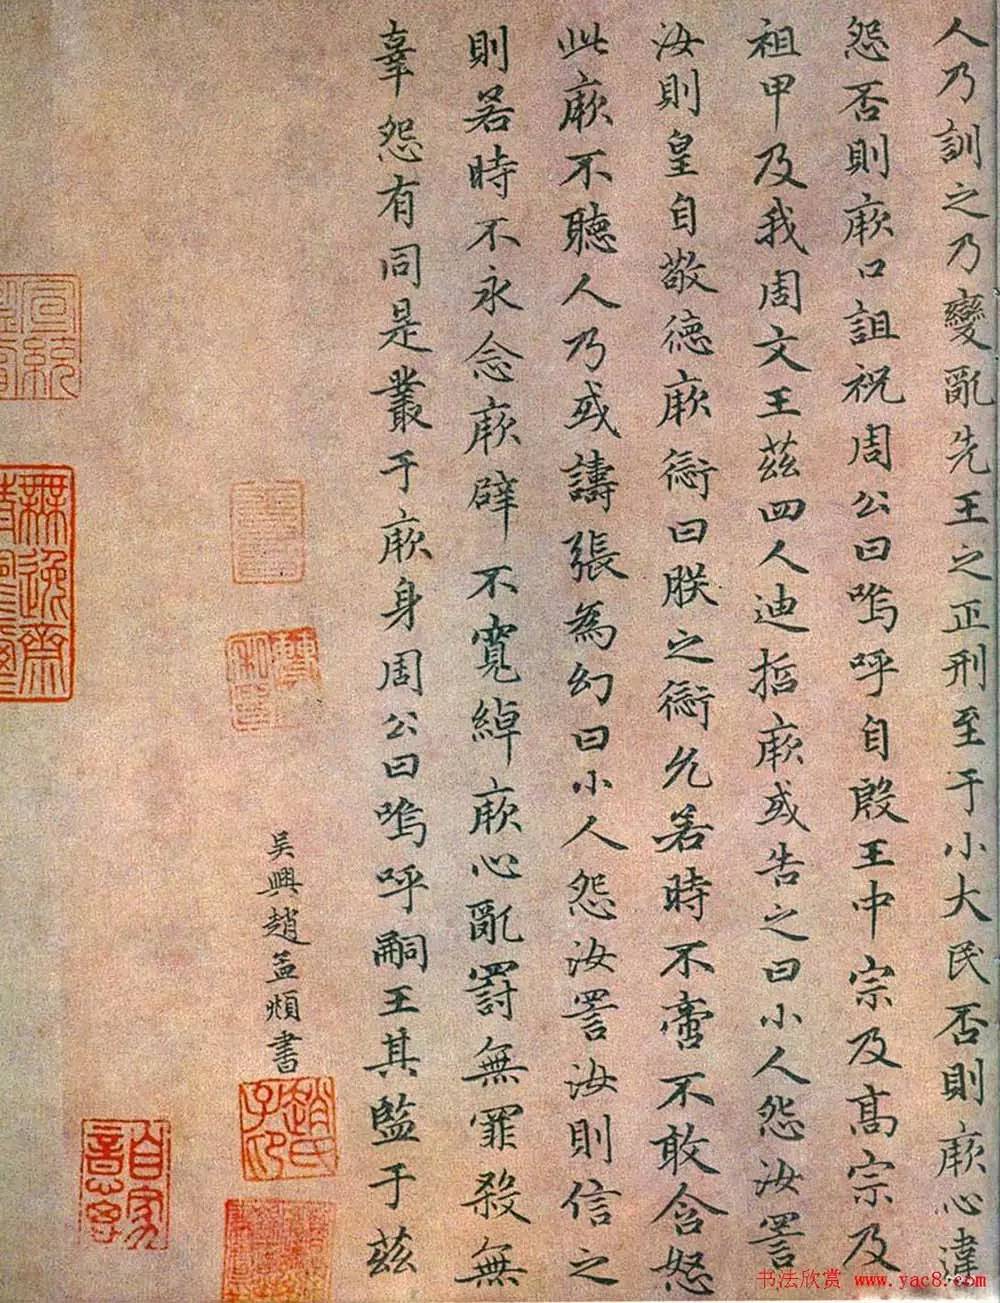 人乃訓之乃變亂先王之正刑至于小大民否則厥心違
怨否則厥口詛祝周公曰嗚呼自殷王中宗及高宗及
祖甲及我周文王茲四人迪哲厥或告之曰小人怨汝詈
汝則皇自敬德厥愆曰朕之愆允若時不啻不敢含怒
此厥不聽人乃或譸張為幻曰小人怨汝詈汝則信之
則若時不永念厥辟不寬綽厥心亂罰無罪殺無
辜怨有同是叢于厥身周公曰嗚呼嗣王其監于茲
吳興趙孟頫書
趙氏子印
無逸齋
书法欣赏 www.yac8.com